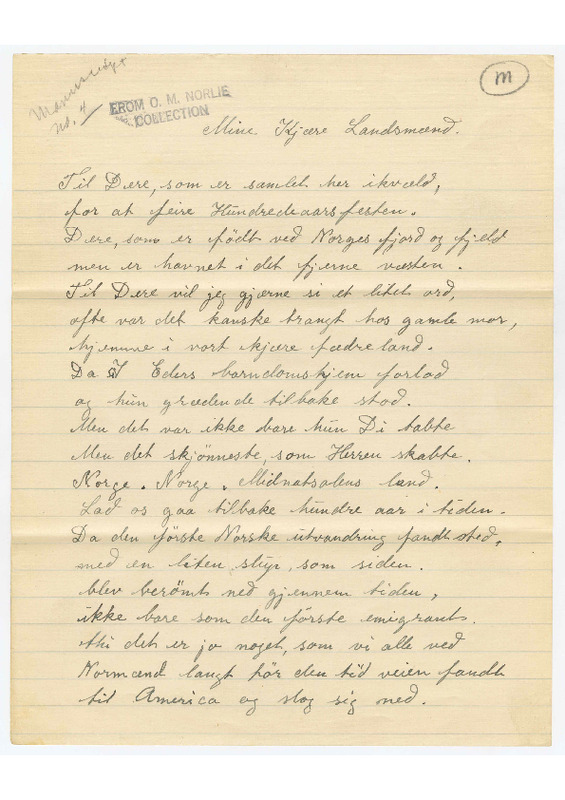 Manuscript
no. 4
FROM O. M. NORLIE
COLLECTION
M
Mine Kjære Landsmænd.
Til Dere, som er samlet her ikvæld,
for at feire Hundredeaarsfesten.
Dere, som er födt ved Norges fjord og fjeld
men er havnet i det fjerne væsten.
Til Dere vil jeg gjærne si et litet ord,
ofte var det kanske trangt hos gamle mor,
hjemme i vort kjære fædreland.
Da I Eders barndomshjem forlod
og hun grædende tilbake stod.
Men det var ikke bare hun Di tabte
Men det skjönneste, som Herren skabte.
Norge. Norge. Midnatsolens land.
Lad os gaa tilbake hundre aar i tiden.
Da den förste Norske utvandring fandt sted,
med en liten styr, som siden.
blev berömt ned gjennem tiden,
ikke bare som den förste emigrant.
thi det er jo noget, som vi alle ved
Normænd langt för den tid veien fandt
til America og slog sig ned.